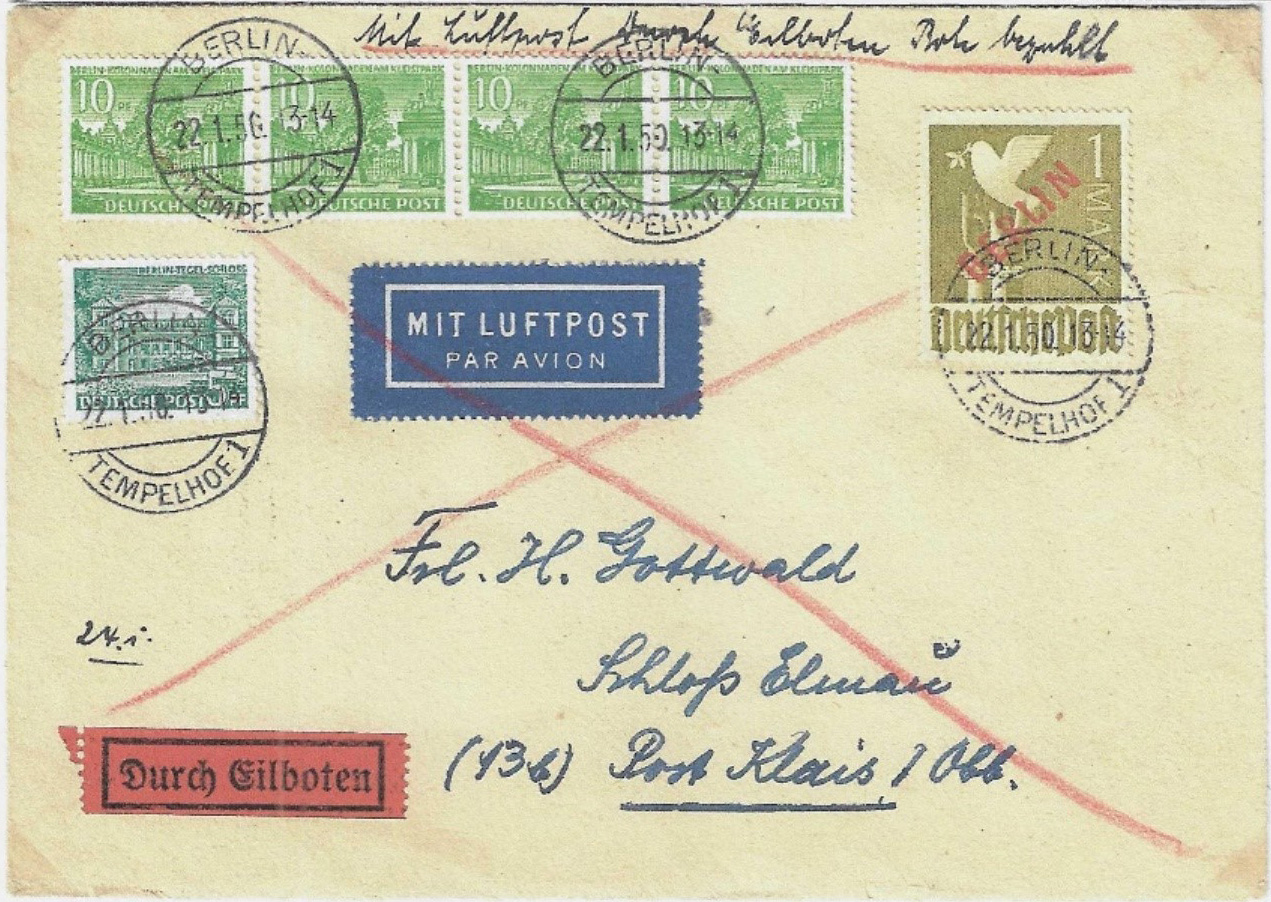 Mit Luftpost Durch Eilboten Bote bezahlt
BERLIN-KOLONNADEN AM KLEISTPARK
10 PF
DEUTSCHE POST
BERLIN-KOLONNADEN AM KLEISTPARK
10
DEUTSCHE POST
BERLIN-KOLONNADEN AM KLEISTPARK
10 PF
DEUTSCHE POST
BERLIN-KOLONNADEN AM KLEISTPARK
10 PF
DEUTSCHE POST
BERLIN
22.1.50. 13-14
TEMPELHOF 1
BERLIN
22.1.50. 13-14
TEMPELHOF 1
1 MARK
BERLIN
Deutsche Post
BERLIN
22.1.50. 13-14
TEMPELHOF 1
BERLIN-TEGEL-SCHLOSS
DEUTSCHE POST 5 PF
BERLIN
22.1.50. 13-14
TEMPELHOF 1
MIT LUFTPOST
PAR AVION
Frl. H. Gottwald
24.i.
Schloß Elmau
(13b) Post Klais / Obb.
Durch Eilboten